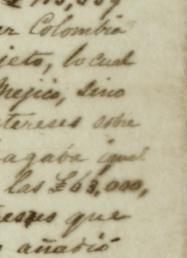 er Colombia
jeto, lo cual
Mejico, sino
tereses sobre
agaba igual
las £63,000,
que
añadió